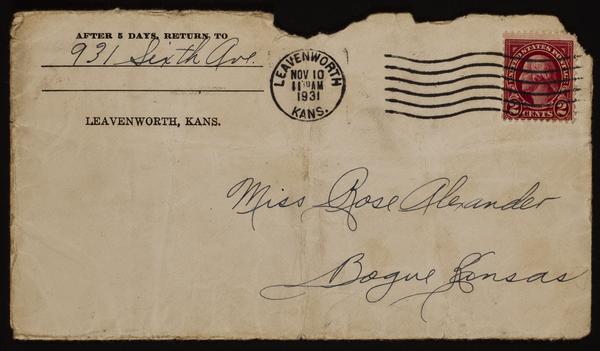 AFTER 5 DAYS, RETURN TO
931 Sixth Ave.
LEAVENWORTH, KANS.
LEAVENWORTH
NOV 10
11 30 AM
1931
KANS.
UNITED STATES POSTAGE
2 CENTS 2
Miss Rose Alexander
Bogue Kansas